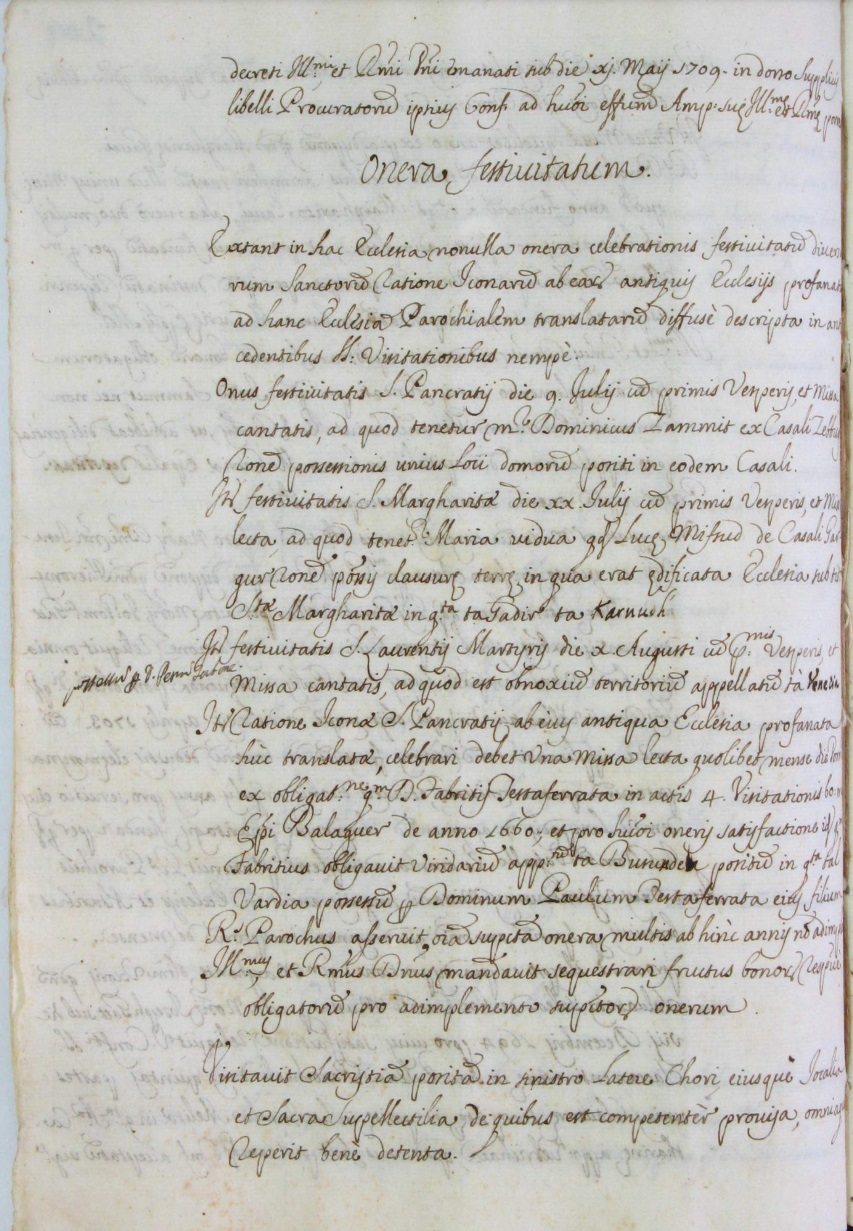 decreti Ill.mi et Rmi Dni emanati sub die xj. Maij 1709. in dorso supplicis
libelli Procuratorū ipsius Conf. ad hui9oi effūm Amp. suę Ill.mę et Rmę
Onera festivitatum.
Extant in hac Ecclesia nonulla onera celebrationis festivitatū diver
rum Sanctorū Ratione Iconarū ab eax̄ antiquis Ecclesijs profanat
ad hanc Ecclesiā Parochialem translatarū diffusè descripta in ant
cedentibus SS: Visitationibus nempè.
Onus festivitatis S. Pancratij die 9. Julij cū primis Vesperis, et Missa
cantatis, ad quod tenetur m.r Dominicus Zammit ex Casali Zebbug
Rōne possessionis unius loci domorū positi in eodem Casali.
Itē festivitatis S. Margharitæ die xx Julij cū primis Vesperis, et Mis
lecta, ad quod tenet.r Maria vidua qd. Lucę Mifsud de Casali Gar
gur Rōne possij clausurę terrę in qua erat ędificata Ecclesia sub tit
S.tæ Margharitæ in q.ta ta Gadir ta Karnuch
Itē festivitatis S. Laurentij Martyris die x Augusti cū p.mis Vesperis, et
possessum p D. Petrū
Missa cantatis, ad quod est obnoxiū territoriū appellatū tà Venezia
Itē Ratione Iconæ S. Pancratij ab eius antiqua Ecclesia profanata
huc translatæ, celebrari debet una Missa lecta quolibet mense die Dom
ex obligat.ne q.m D. Fabritij Testaferrata in actis 4. Visitationis bo: m:
Epi Balaguer de anno 1660; et pro hui9oi oneris satisfactione id
Fabritius obligavit Viridariū app.tū ta Bunadeu positū in q.ta tal
Vardia possessū p Dominum Paulum Testaferrata eius filium
R.s Parochus asseruit oīa supctā onera multis ab hinc annis nō adimp
Ill.mus et Rm̄us Dn̄us mandavit sequestrari fructus bonorx̄ respue
obligatorū pro adimplemento supctorx̄ onerum.
Visitavit Sacristiā positā in sinistro latere Chori, eiusquè Jocalia
et Sacra Supellectilia de quibus est competentèr provisa, omniaq
Reperit benè detenta.